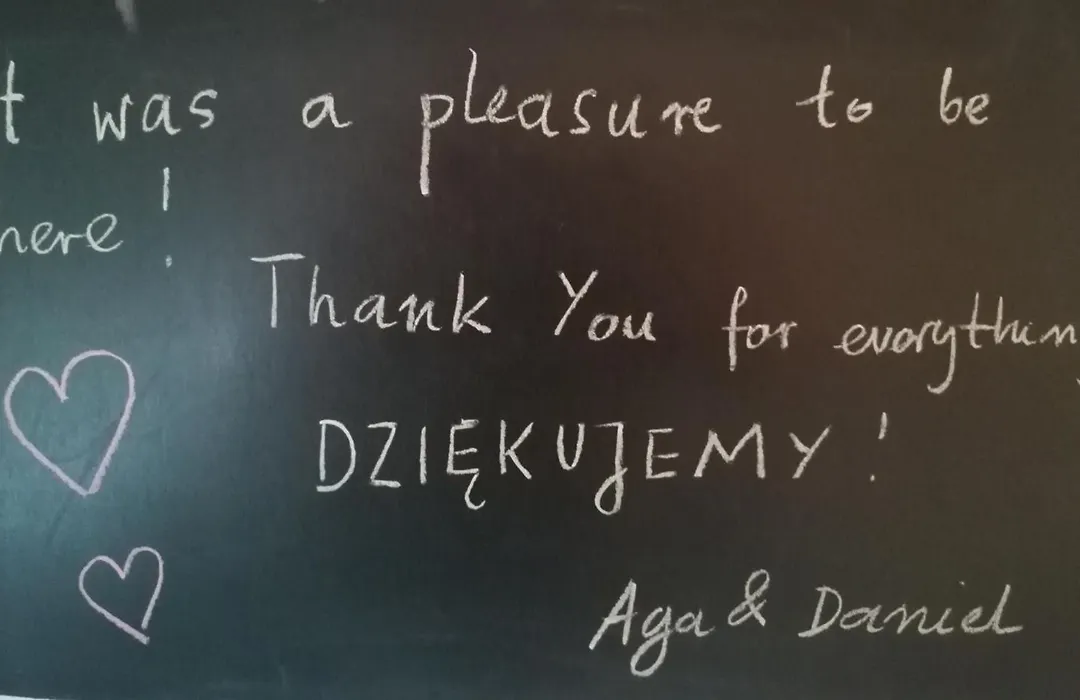 t was a pleasure to be
here!
Thank You for everythin
DZIĘKUJEMY!
Aga & Daniel